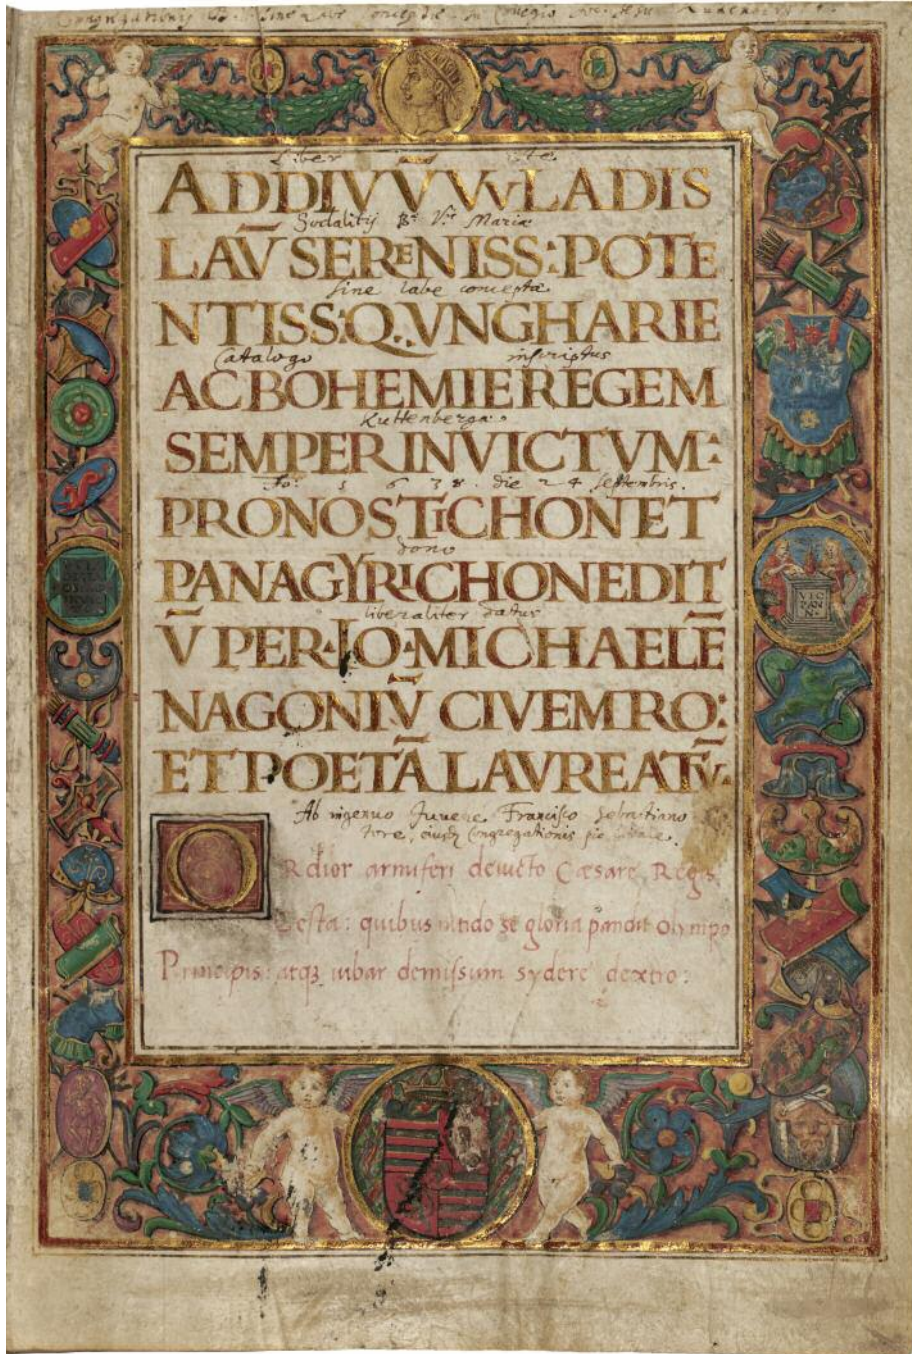 Congregationis B. V. sine labe conceptae in Collegio Soc. Jesu
Liber iste
AD DIVV̄ VvLADIS
Sodalitij B. V. Mariæ
LAV̄ SERENISS: POTE
sine labe conceptæ
NTISS: Q. VNGHARIE
Catalogo inscriptus
AC BOHEMIE REGEM
Kuttenbergæ
SEMPER INVICTVM:
1638. die 24 Septembris.
PRONOSTICHON ET
dono
PANAGYRICHON EDIT
liberaliter datus
V̄ PER · IO · MICHAELĒ
NAGONIV̄ CIVEM RO:
ET POETĀ LAVREATV̄.
Ab ingenuo Iuvene Francisco Sebastiano
eiusq Congregationis
ORdior armiferi deuicto Cæsare Regis
Gesta: quibus nitido se gloria pandit olympo
Principis: atqz iubar demissum sydere dextro:
VIC
PAN
N·